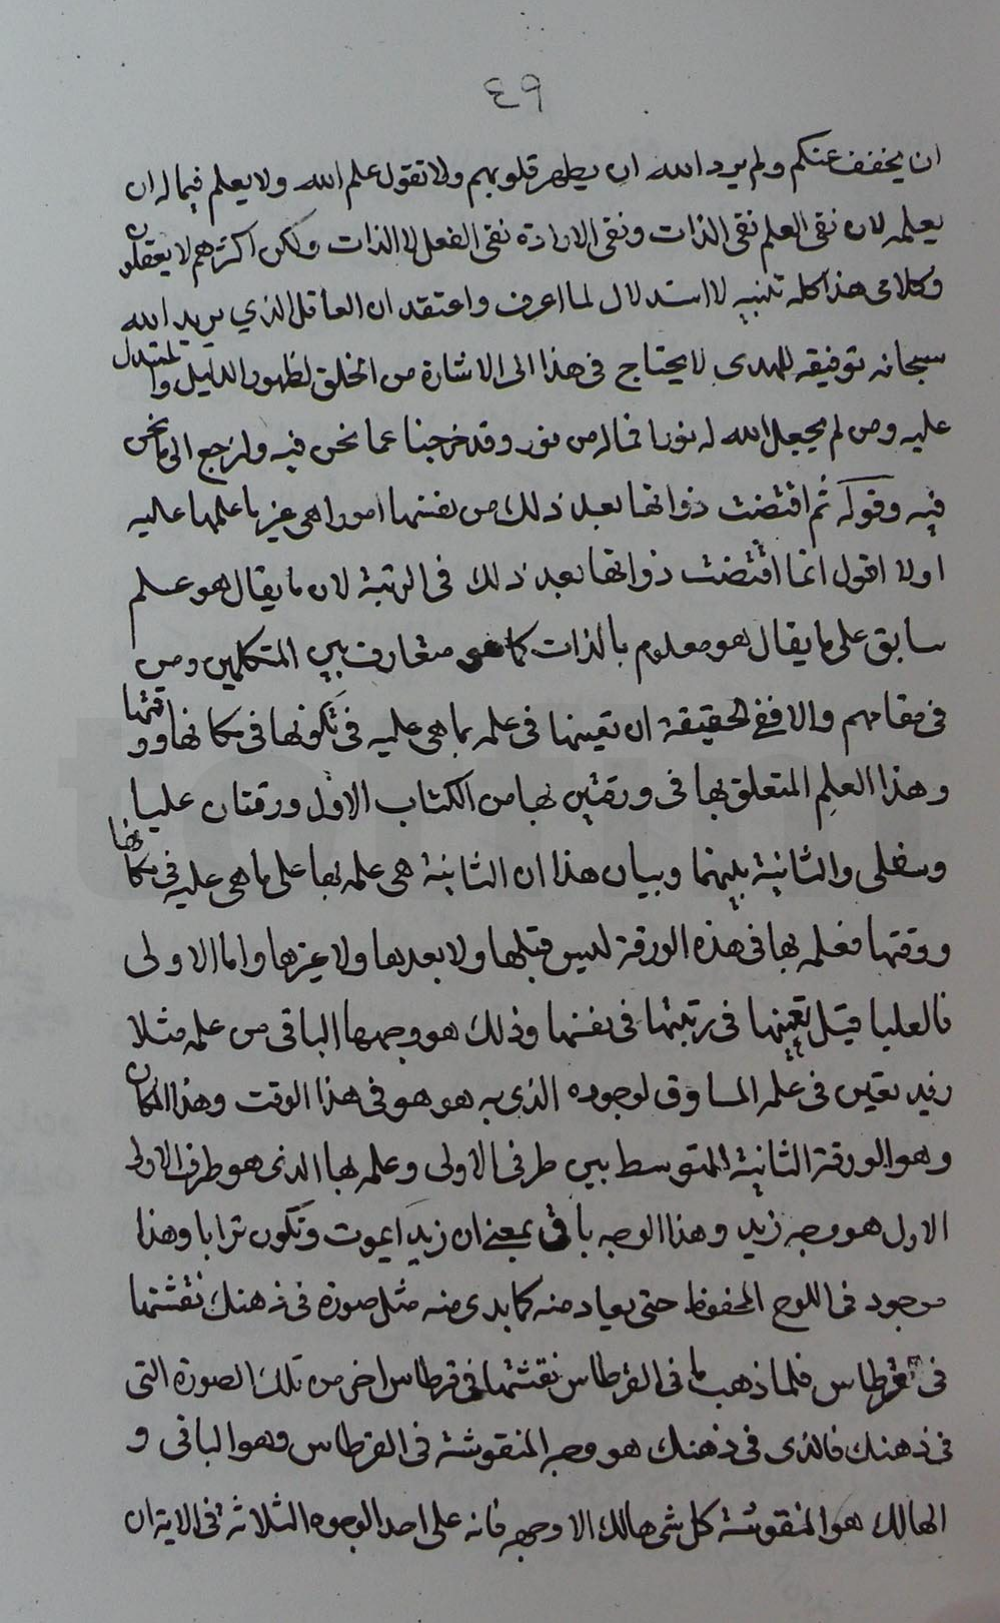 ٤٩
ان يخفف عنكم ولم يرد الله ان يطهر قلوبهم ولا تقول علم الله ولا يعلم فيما له ان
يعلمه لان نفى العلم نفى الذات ونفى الارادة نفى الفعل لا الذات ولكن اكثرهم لا يعقلون
وكلامى هذا كله تنبيه لا استدلال لما اعرف واعتقد ان العاقل الذي يريد الله
سبحانه توفيقه للهدى لا يحتاج فى هذا الى الاشارة من الخلق لظهور الدليل والمستدل
عليه ومن لم يجعل الله له نورا فماله من نور وقد خرجنا عما نحن فيه ولنرجع الى ما نحن
فيه وقوله ثم اقتضت ذواتها بعد ذلك من نفسها امورا هى غير ما علمها عليه
اولا اقول انما اقتضت ذواتها بعد ذلك فى الرتبة لان ما يقال هو علم
سابق على ما يقال هو معلوم بالذات كما هو متعارف بين المتكلمين ومن
فى مقامهم والا ففى الحقيقة ان تعينها فى علمه بما هى عليه فى تكونها فى مكانها ووقتها
وهذا العلم المتعلق بها فى ورقتين بها من الكتاب الاول ورقتان عليا
وسفلى والثانية بينهما وبيان هذا ان الثانية هى علمه بها على ما هى عليه فى مكانها
ووقتها فعلمه بها فى هذه الورقة ليس قبلها ولا بعدها ولا غيرها واما الاولى
فالعليا قبل تعينها فى رتبتها فى نفسها وذلك هو وجهها الباقى من علمه مثلا
زيد تعين فى علمه المساوق لوجوده الذى به هو هو فى هذا الوقت وهذا المكان
وهو الورقة الثانية المتوسط بين طرفى الاولى وعلمه بها الذى هو طرف الاولى
الاول هو وجه زيد وهذا الوجه باقى بمعنى ان زيدا يموت وتكون ترابا وهذا
موجود فى اللوح المحفوظ حتى يعاد منه كما بدى منه مثل صورة فى ذهنك نقشتها
فى قرطاس فلما ذهب ما فى القرطاس نقشتها فى قرطاس اخر من تلك الصورة التى
فى ذهنك فالذى فى ذهنك هو وجه المنقوشة فى القرطاس وهو الباقى و
الهالك هو المنقوشة كل شى هالك الا وجهه فانه على احد الوجوه الثلاثة فى الاية ان